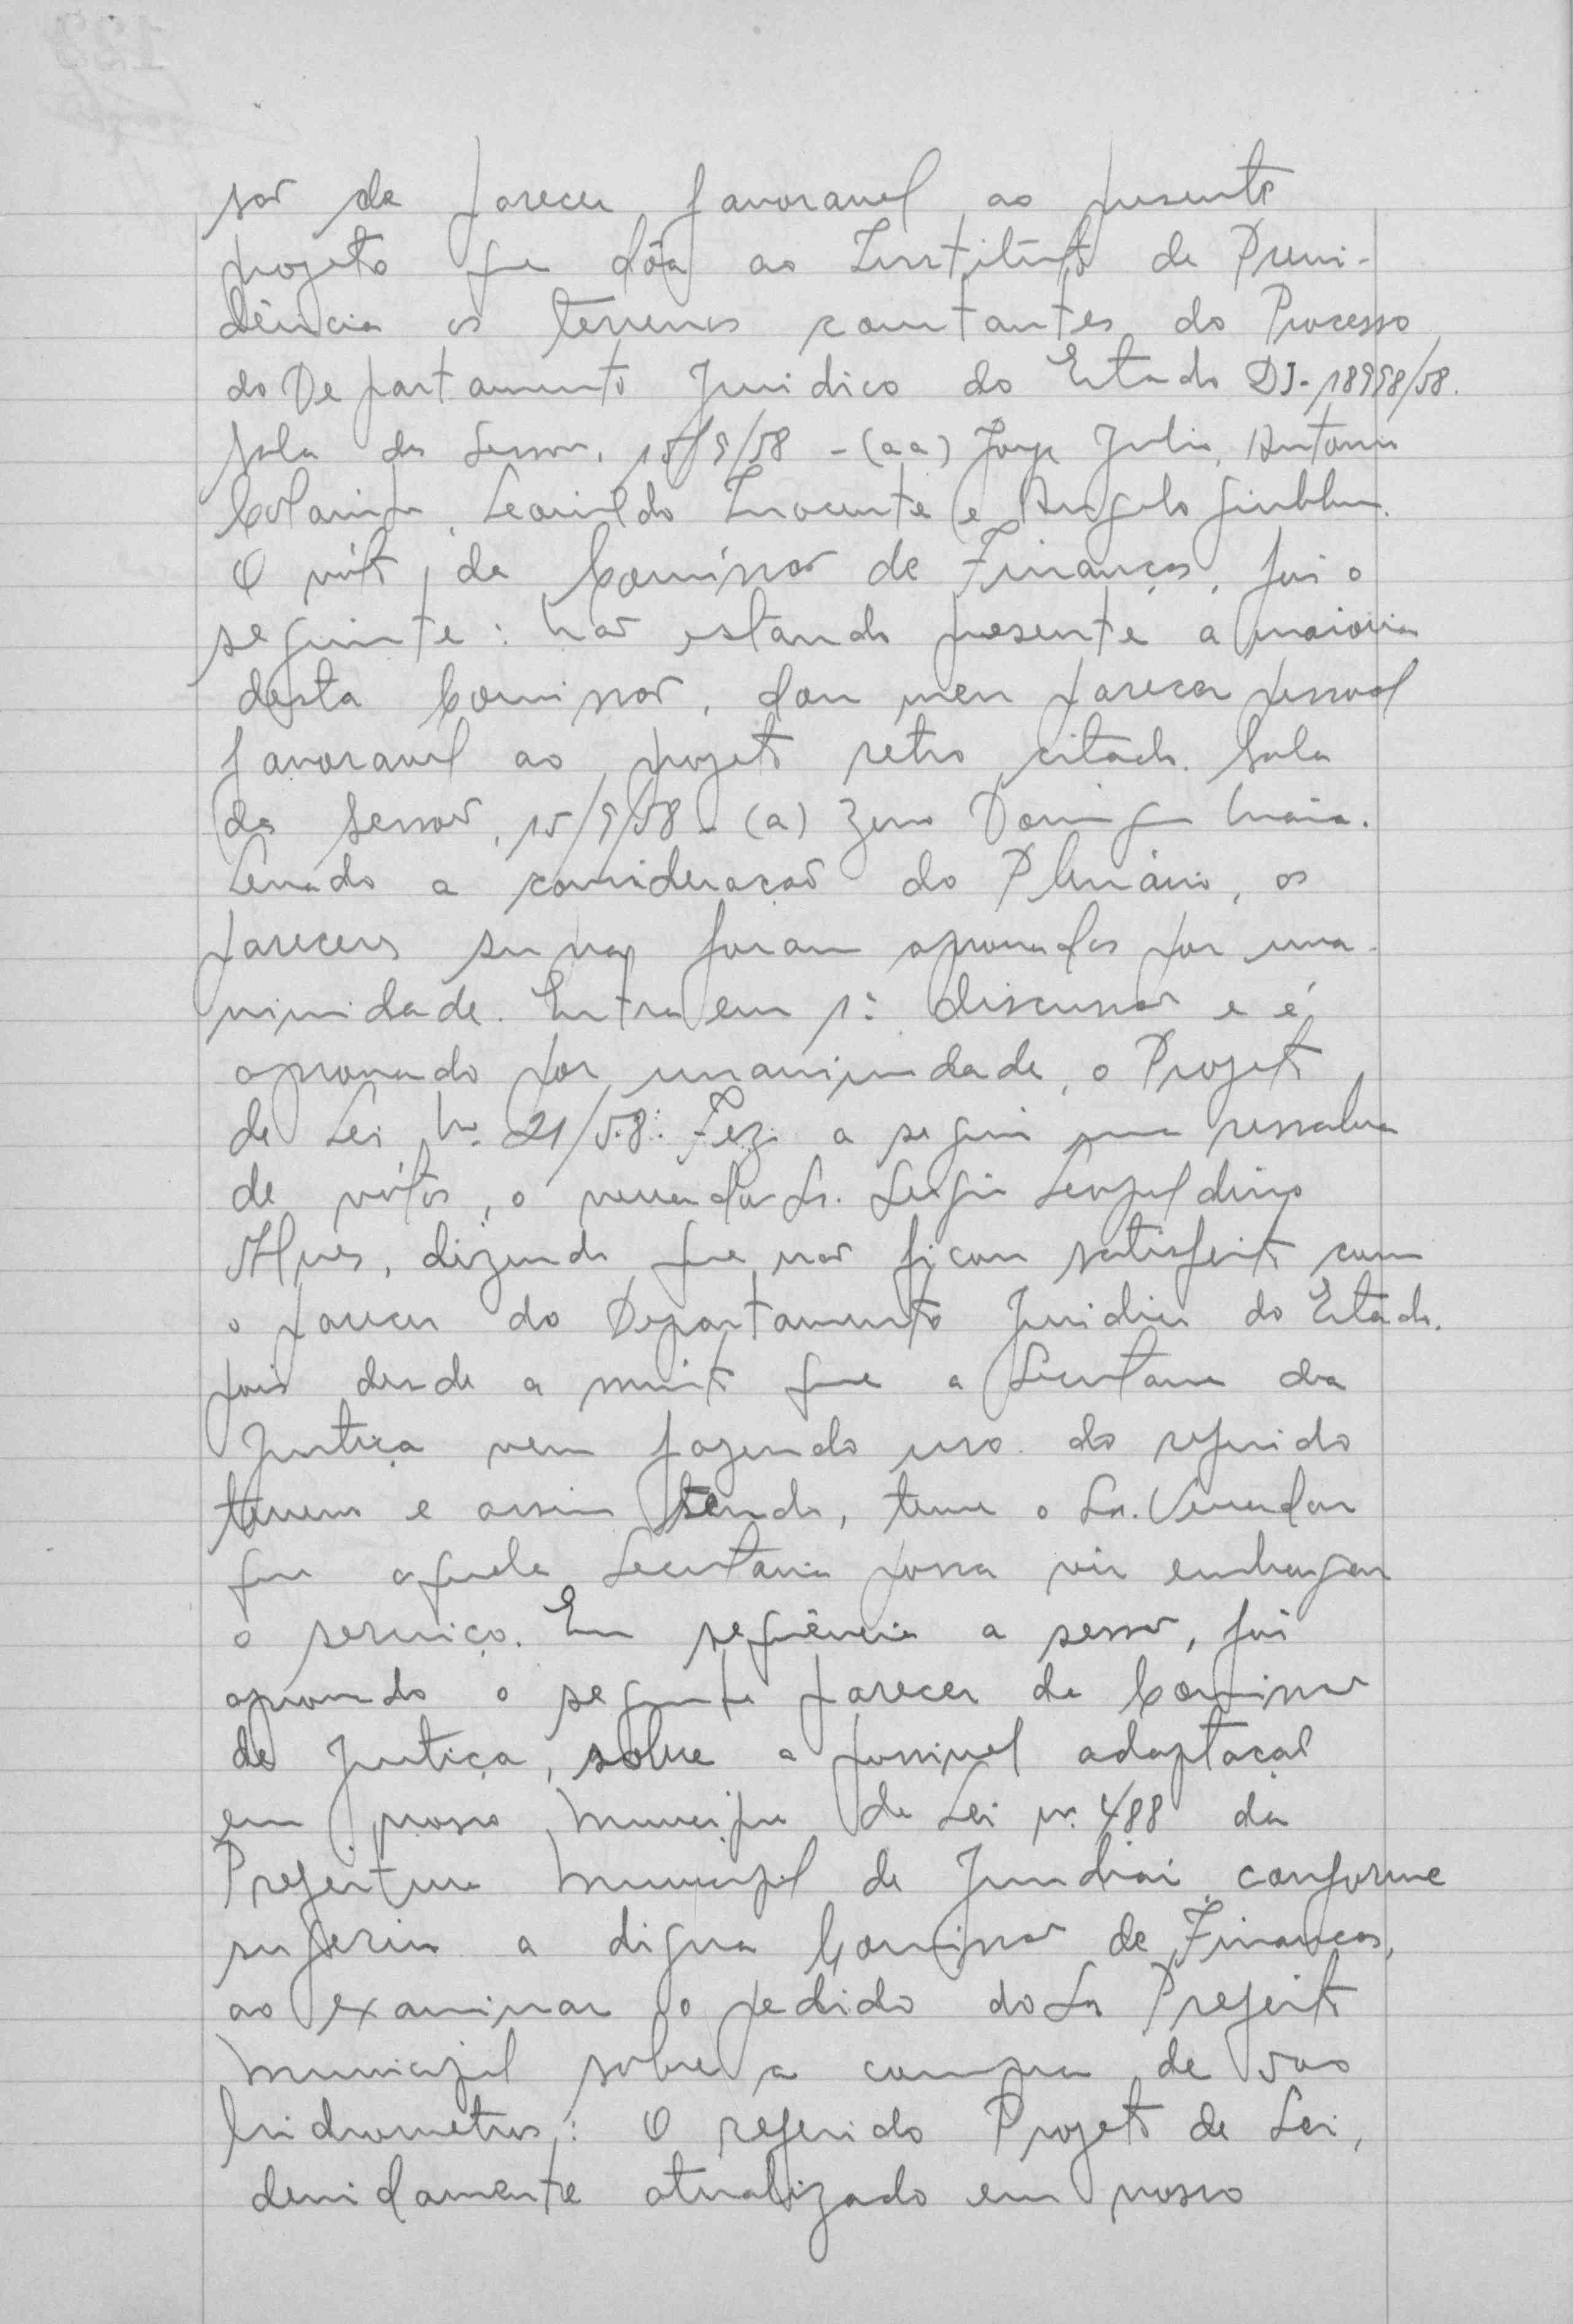 sor de parecer favoravel ao presente
projeto que dôa ao Instituto de Previ-
dência os terrenos constantes do Processo
do Departamento Juridico do Estado DJ-18998/58.
Sala da Sessão, 15/9/58 - (aa) Jorge Julio, Antonio
Leonildo Inocente e Angelo
O vóto da Comissão de Finanças, foi o
seguinte: Não estando presente a maioria
desta Comissão, dou meu parecer pessoal
favoravel ao projeto retro citado. Sala
da Sessão, 15/9/58 - (a) Zeno Domingues Maia.
Levado a consideração do Plenário, os
pareceres supra foram aprovados por una-
nimidade. Entra em 1ª discussão e é
aprovado por unanimidade, o Projeto
de Lei Nº 21/58. Fez a seguir uma ressalva
de vótos, o vereador Sr. Sergio Leopoldino
Alves, dizendo que não ficou satisfeito com
o parecer do Departamento Juridico do Estado.
pois desde a muito que a Secretaria da
Justiça vem fazendo uso do referido
terreno e assim sendo, teme o Sr. Vereador
que aquela Secretaria possa vir embargar
o serviço. Em seqüência a sessão, foi
aprovado o seguinte parecer da Comissão
de Justiça, sobre a possivel adaptação
em nosso Municipio da Lei nº 488 da
Prefeitura Municipal de Jundiaí, conforme
sugeriu a digna Comissão de Finanças,
ao examinar o pedido do Sr Prefeito
Municipal sobre a compra de 500
hidrometros: O referido Projeto de Lei,
devidamente atualizado em nosso